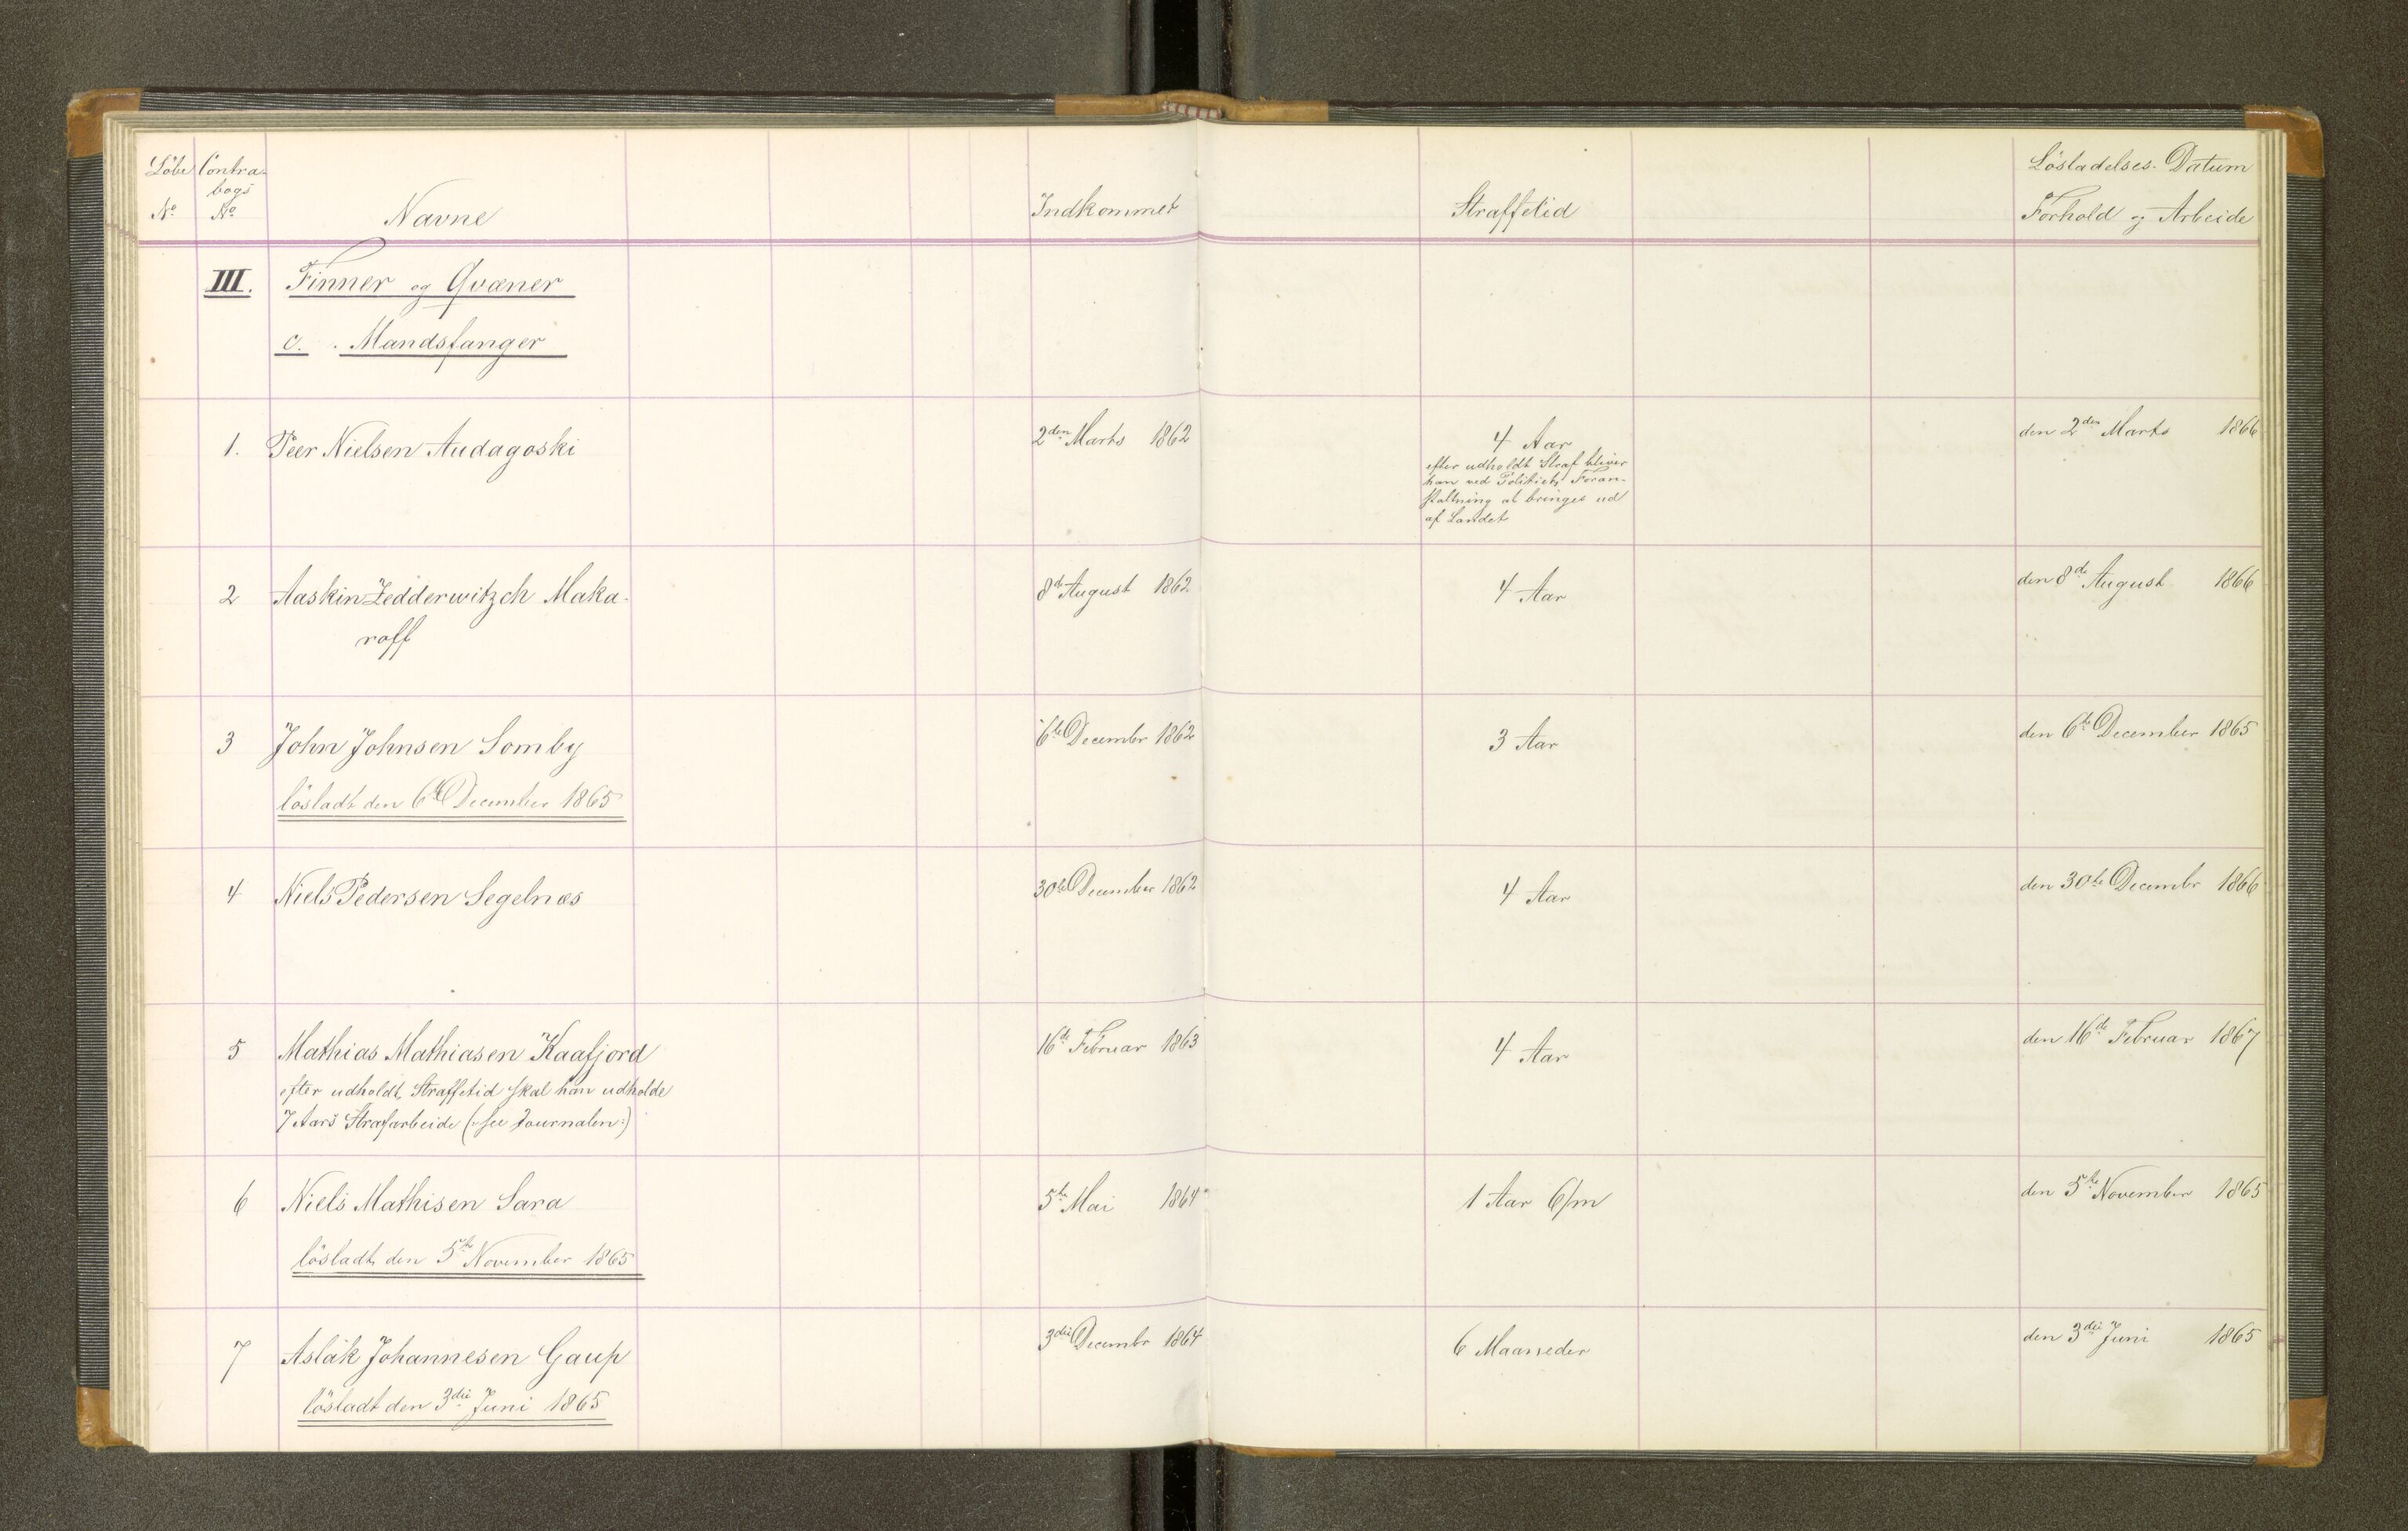 Löbe Contra- Lösladelses- Datum
bogs
No No Navne Indkommet Straffetid Forhold og Arbeide
III. Finner og Qvæner
c. Mandsfanger
1. Peer Nielsen Audagoski 2den Marts 1862 4 Aar den 2den Marts 1866
efter udholdt Straf bliver
han ved Politiets Foran-
staltning at bringes ud
af Landet
2 Aaskin Zedderwitzch Maka- 8de August 1862 4 Aar den 8de August 1866
roff
3 John Johnsen Somby 6te Decembr 1862 3 Aar den 6te December 1865
lösladt den 6te December 1865
4 Niels Pedersen Segelnæs 30te December 1862 4 Aar den 30te Decembr 1866
5 Mathias Mathiasen Kaafjord 16de Februar 1863 4 Aar den 16de Februar 1867
efter udholdt Straffetid skal han udholde
7 Aars Strafarbeide (see Journalen:)
6 Niels Mathisen Sara 5te Mai 1864 1 Aar 6/m den 5te November 1865
lösladt den 5te November 1865
7 Aslak Johannesen Gaup 3die Decembr 1864 6 Maaneder den 3die Juni 1865
lösladt den 3die Juni 1865